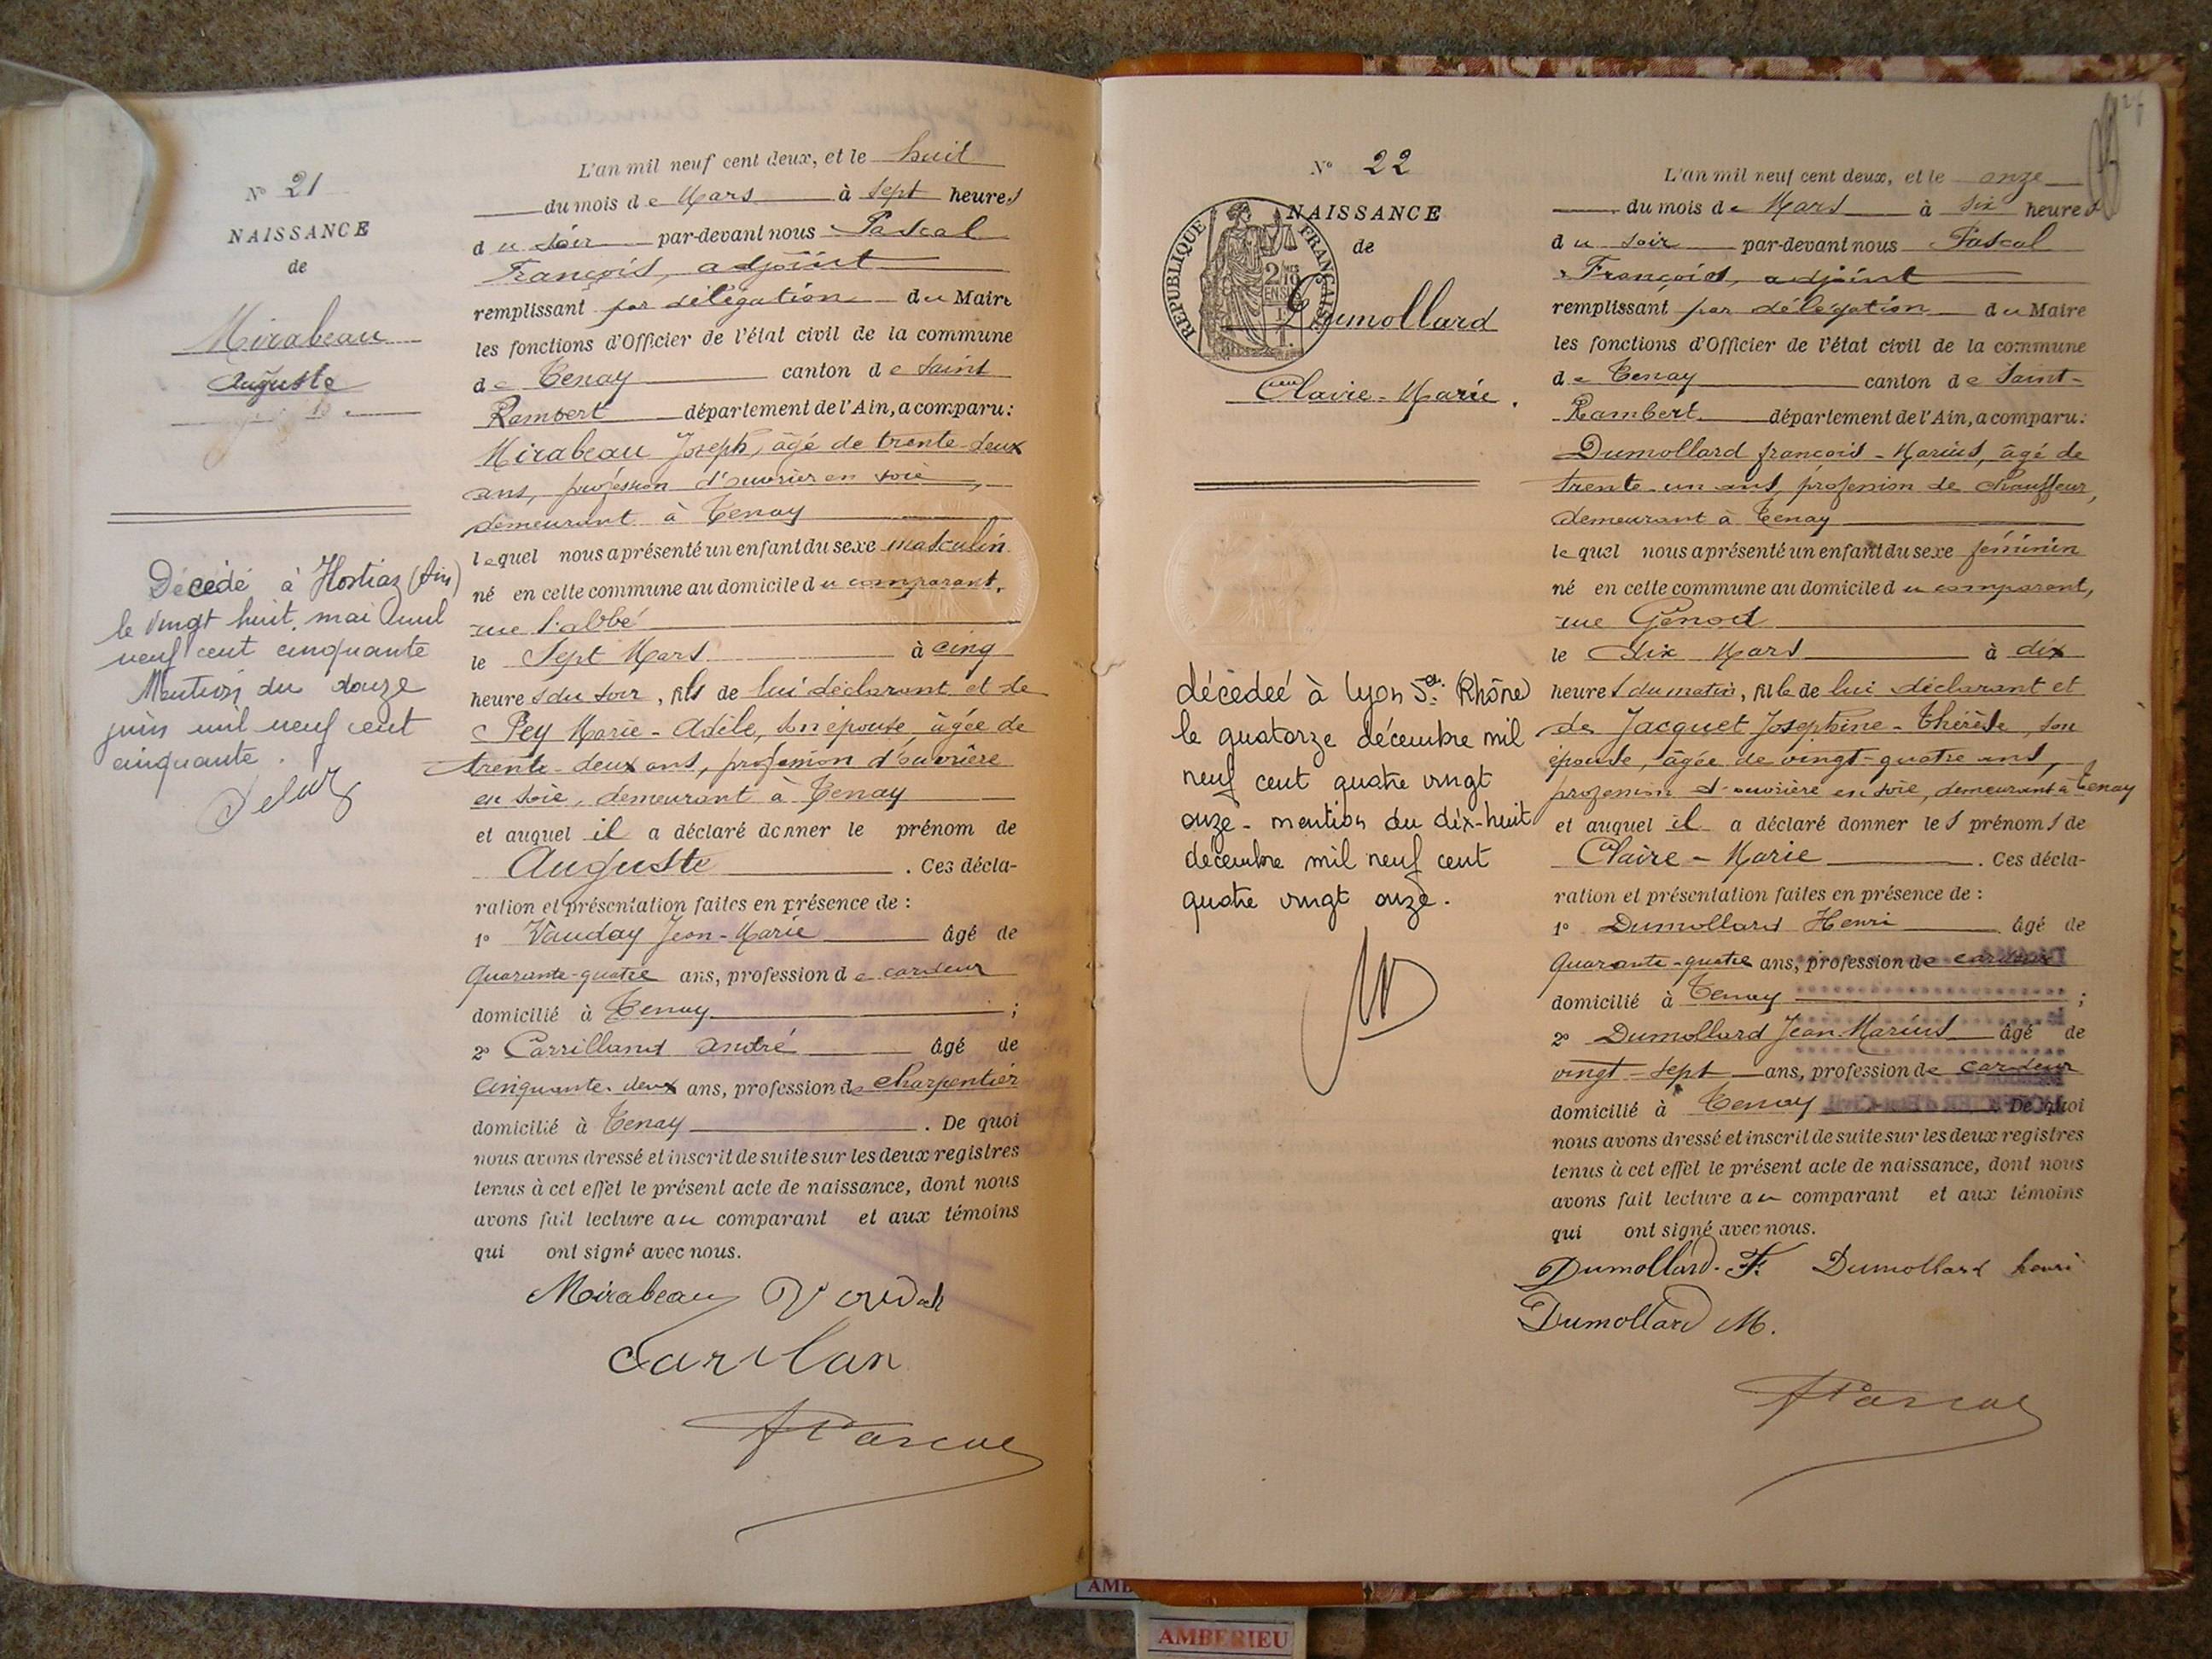 N° 21
NAISSANCE
de
Mirabeau
Auguste
Décédé à Hostiaz (Ain)
le vingt huit mai mil
neuf cent cinquante
Mention du douze
juin mil neuf cent
cinquante.
L'an mil neuf cent deux, et le huit
du mois de Mars à sept heures
du soir par-devant nous Pascal
François, adjoint
remplissant par délégation du Maire
les fonctions d'Officier de l'état civil de la commune
de Tenay canton de Saint
Rambert département de l'Ain, a comparu:
Mirabeau Joseph, âgé de trente-deux
ans, profession d'ouvrier en soie,
demeurant à Tenay
lequel nous a présenté un enfant du sexe masculin
né en cette commune au domicile du comparant,
rue l'abbé
le Sept Mars à cinq
heures du soir, fils de lui déclarant et de
Pey Marie-Adèle, son épouse, âgée de
trente-deux ans, profession d'ouvrière
en soie, demeurant à Tenay
et auquel il a déclaré donner le prénom de
Auguste. Ces décla-
ration et présentation faites en présence de:
1° Vauday Jean-Marie âgé de
Quarante-quatre ans, profession de cardeur
domicilié à Tenay;
2° Carrilland André âgé de
Cinquante-deux ans, profession de charpentier
domicilié à Tenay. De quoi
nous avons dressé et inscrit de suite sur les deux registres
tenus à cet effet le présent acte de naissance, dont nous
avons fait lecture au comparant et aux témoins
qui ont signé avec nous.
Mirabeau
Carilan
FPascal
N° 22
NAISSANCE
de
REPUBLIQUE FRANÇAISE
Dumollard
Claire-Marie.
décédeé à Lyon 5e. Rhône)
le quatorze décembre mil
neuf cent quatre vingt
onze - mention du dix-huit
décembre mil neuf cent
quatre vingt onze.
L'an mil neuf cent deux, et le onze
du mois de Mars à six heures
du soir par-devant nous Pascal
François, adjoint
remplissant par délégation du Maire
les fonctions d'Officier de l'état civil de la commune
de Tenay canton de Saint-
Rambert département de l'Ain, a comparu:
Dumollard françois-Marius, âgé de
trente-un ans, profession de chauffeur,
demeurant à Tenay
lequel nous a présenté un enfant du sexe féminin
né en cette commune au domicile du comparant,
rue Génod
le Dix Mars à dix
heures du matin, fille de lui déclarant et
de Jacquet Josephine-Thérèse, son
épouse, âgée de vingt-quatre ans,
profession d'ouvrière en soie, demeurant à Tenay
et auquel il a déclaré donner les prénoms de
Claire-Marie. Ces décla-
ration et présentation faites en présence de:
1° Dumollard Henri âgé de
Quarante-quatre ans, profession de cardeur
domicilié à Tenay;
2° Dumollard Jean Marius âgé de
vingt-sept ans, profession de cardeur
domicilié à Tenay. De quoi
nous avons dressé et inscrit de suite sur les deux registres
tenus à cet effet le présent acte de naissance, dont nous
avons fait lecture au comparant et aux témoins
qui ont signé avec nous.
Dumollard. F. Dumollard henri
Dumollard M.
FPascal
AMBERIEU